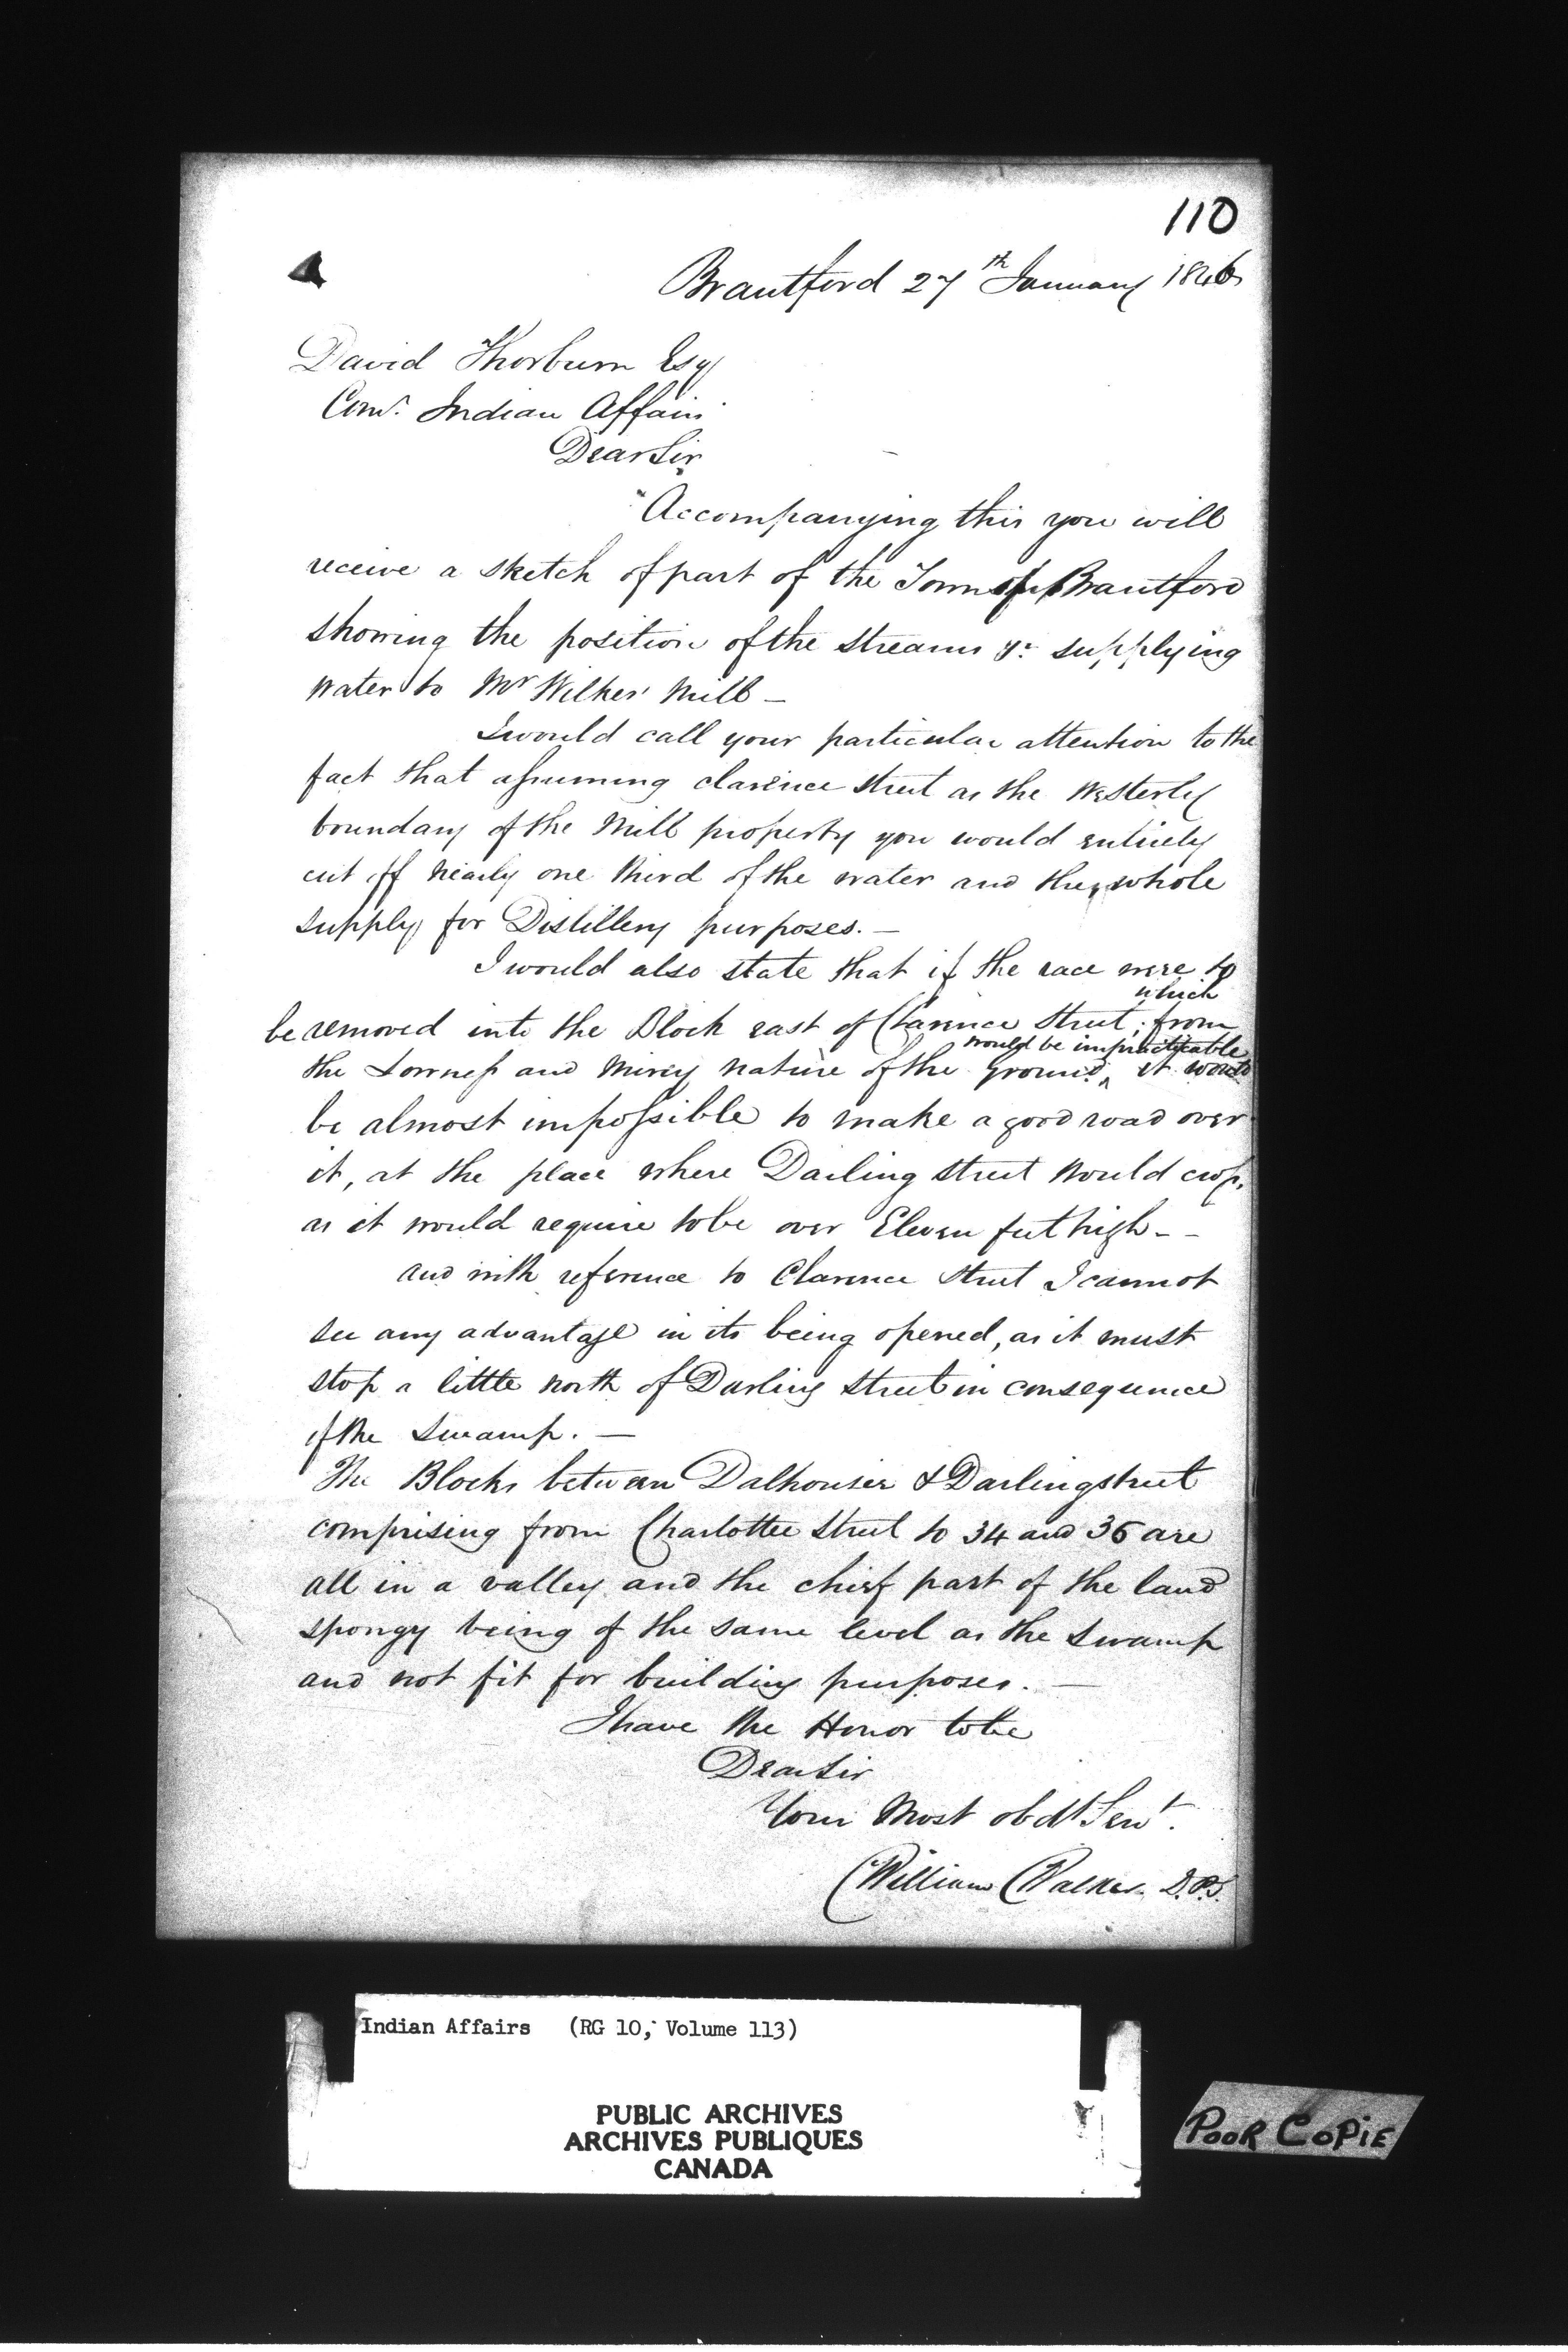 110
Brantford 27th January 1846
David Thorburn Esq
Comr. Indian Affairs
Dear Sir
Accompanying this you will
receive a sketch of part of the Town of Brantford
showing the position of the streams &c supplying
water to Mr Wilkes' Mill –
I would call your particular attention to the
fact that assuming Clarence Street as the Westerly
boundary of the Mill property you would entirely
cut off nearly one third of the water and the whole
supply for Distillery purposes. –
I would also state that if the race were to
which
be removed into the Block east of Clarence Street; from
would be impracticable
the Lowness and Mirey nature of the ground, it would
be almost impossible to make a good road over
it, at the place where Darling Street would cross,
as it would require to be over Eleven feet high – –
and with reference to Clarence Street I cannot
see any advantage in its being opened, as it must
stop a little north of Darling Street in consequence
of the Swamp. –
The Blocks between Dalhousie & Darling Street
comprising from Charlotte Street to 34 and 36 are
all in a valley and the chief part of the land
spongy being of the same level as the Swamp
and not fit for building purposes. –
I have the Honor to be
Dear Sir
Your Most obdt Servt.
William Walker D.P.S.
Indian Affairs (RG 10, Volume 113)
PUBLIC ARCHIVES
ARCHIVES PUBLIQUES
CANADA
POOR COPIE